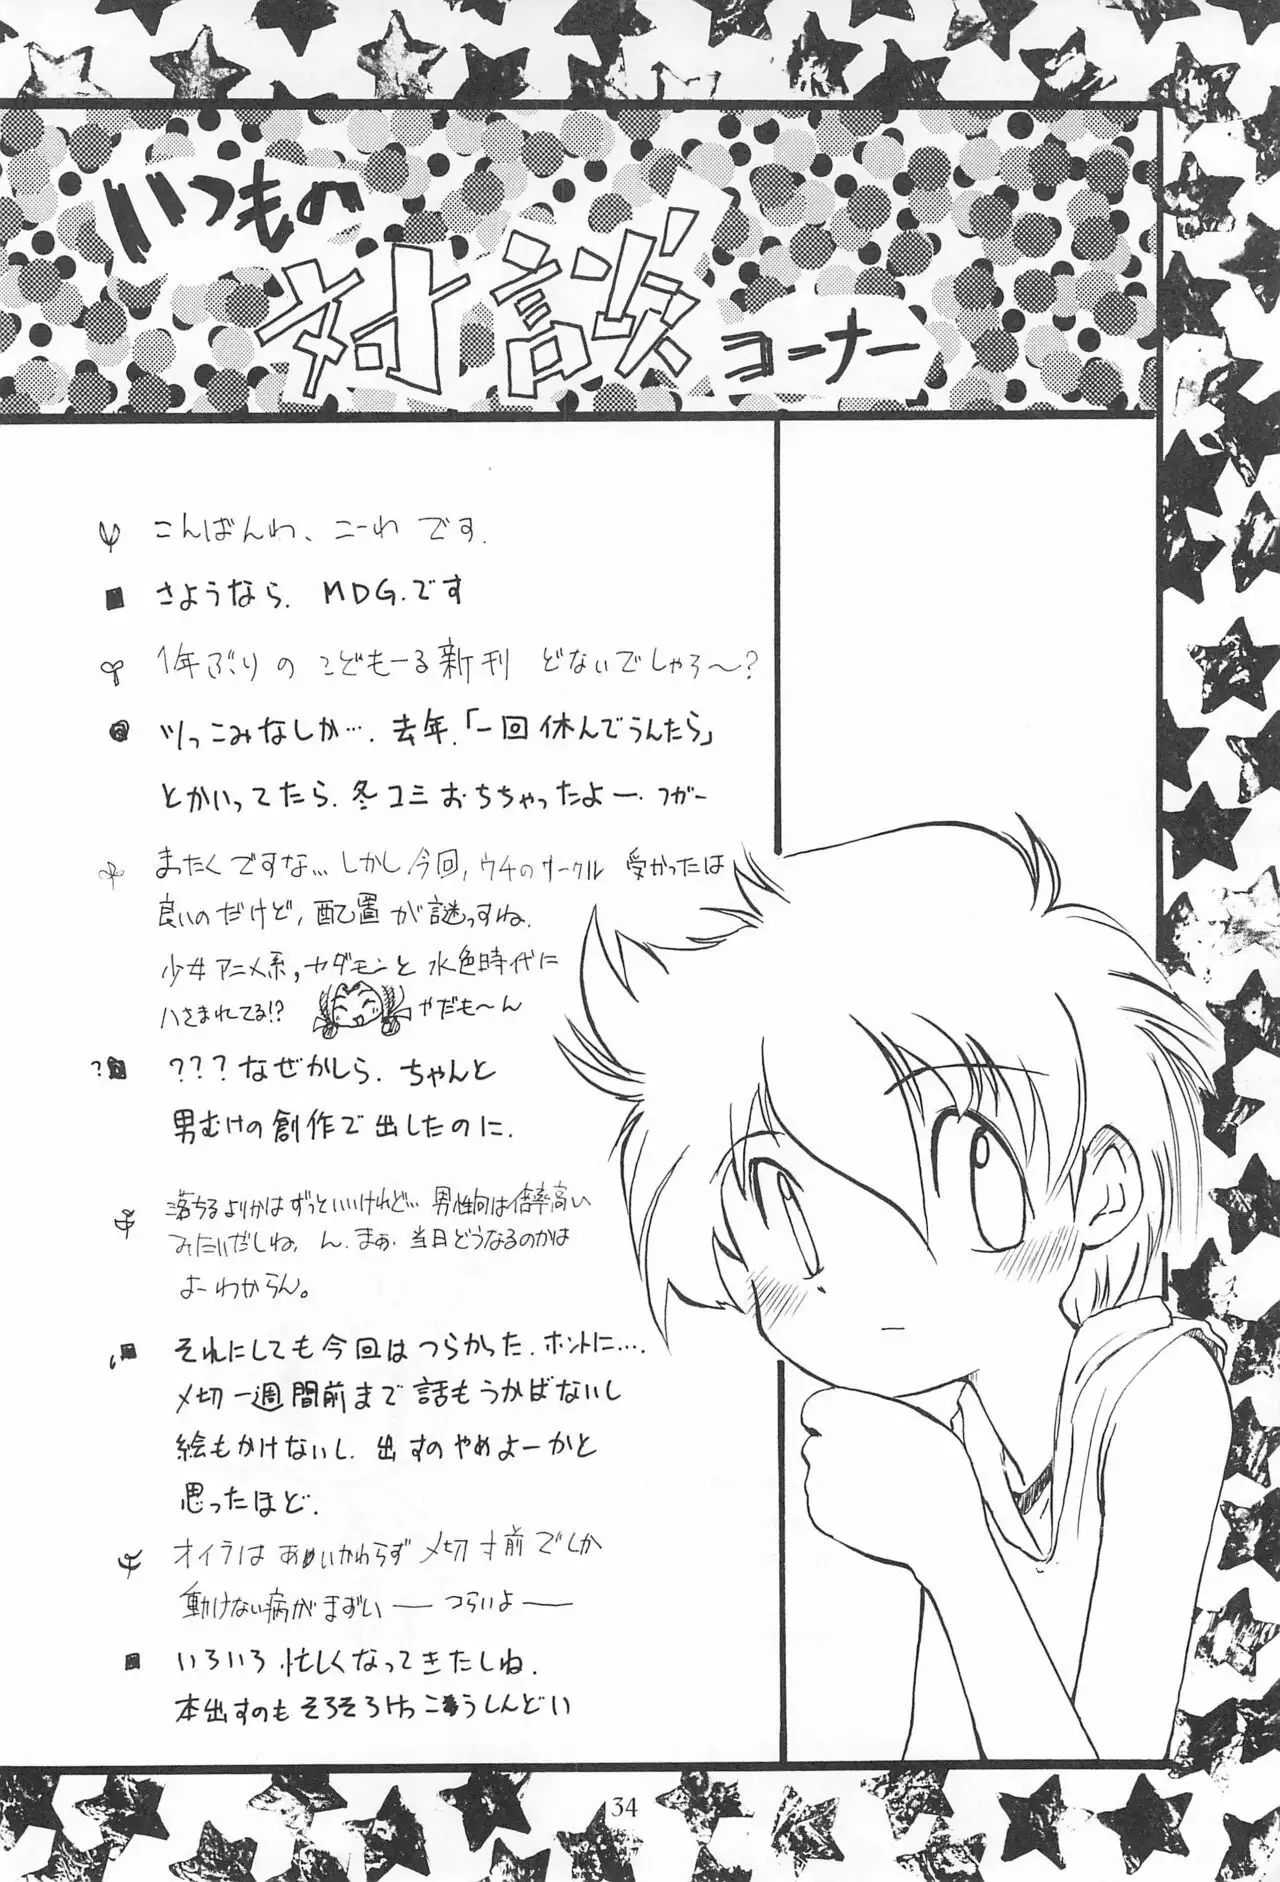 いつもの
対談
コーナー
こんばんわ、ニーわ です.
さようなら. MDG.です
1年ぶりの こどもーる新刊 どないでしゃろ〜?
ツっこみなしか…. 去年.「一回休んでうんたら」
とかいってたら. 冬コミおちちゃったよー. フガー
まったくですな… しかし今回, ウチのサークル 受かったは
良いのだけど, 配置が謎っすね.
少女アニメ系, カダモンと 水色時代に
ハさまれてる!? やだも〜ん
??? なぜかしら. ちゃんと
男むけの創作で出したのに.
落ちるよりかはずっといいけれど… 男性向は倍率高い
みたいだしね, ん. まぁ. 当日どうなるのかは
よーわからん。
それにしても今回はつらかった. ホントに….
〆切一週間前まで話もうかばないし
絵もかけないし. 出すのやめよーかと
思ったほど.
オイラは あいかわらず 〆切寸前でしか
動けない病がまずい ── つらいよ ──
いろいろ忙しくなってきたしね.
本出すのもそろそろけっこうしんどい
34